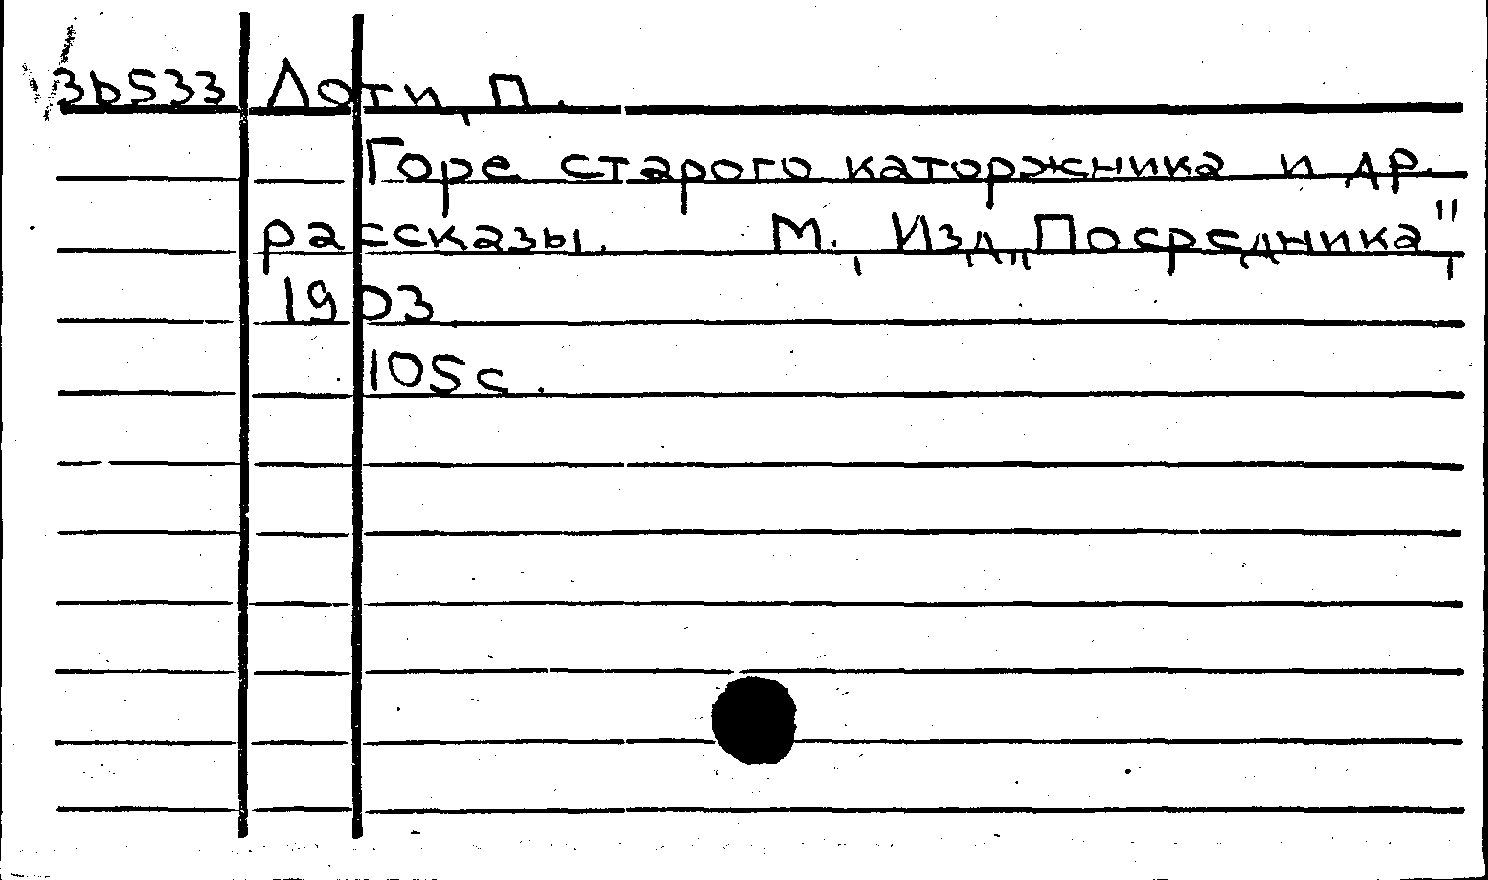 3b533 Лоти, П.
Горе старого каторжника и др.
рассказы. М., Изд. „Посредника",
1903
105с.